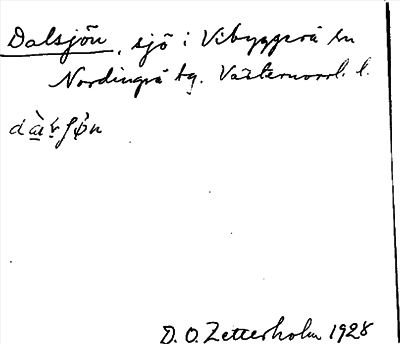 Dalsjön, sjö i Vibyggerå sn
Nordingrå tg. Västernorrl. l.
D. O. Zetterholm 1928